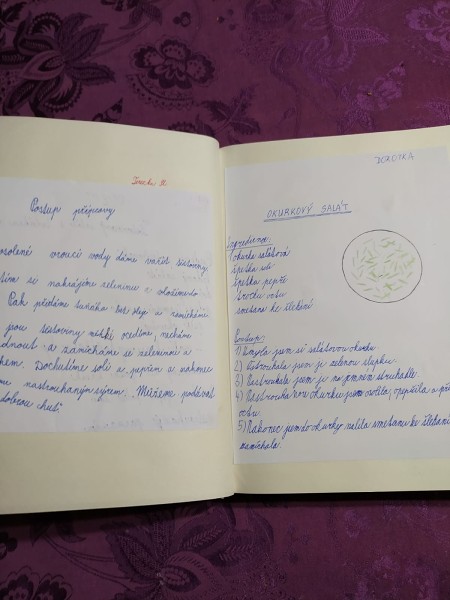 Terezka H.
Postup přípravy
osolené vroucí vody dáme vařit těstoviny,
tím si nakrájíme zeleninu a vložíme do
Pak přidáme tuňáka bez oleje a zamícháme.
jsou těstoviny měkké ocedíme, necháme
dnout a zamícháme se zeleninou a
kem. Dochutíme solí a pepřem a nakonec
me nastrouhaným sýrem. Můžeme podávat
dobrou chuť.
DOROTKA
OKURKOVÝ SALÁT
Ingredience:
Okurka salátová
špetka soli
špetka pepře
trochu octu
smetana ke šlehání
Postup:
1) Umyla jsem si salátovou okurku.
2) Oškrabala jsem je zelenou slupku.
3) Nastrouhala jsem je na jemném struhadle.
4) Nastrouhanou okurku jsem osolila, opepřila a při
octu.
5) Nakonec jsem do okurky nalila smetanu ke šlehání
zamíchala.